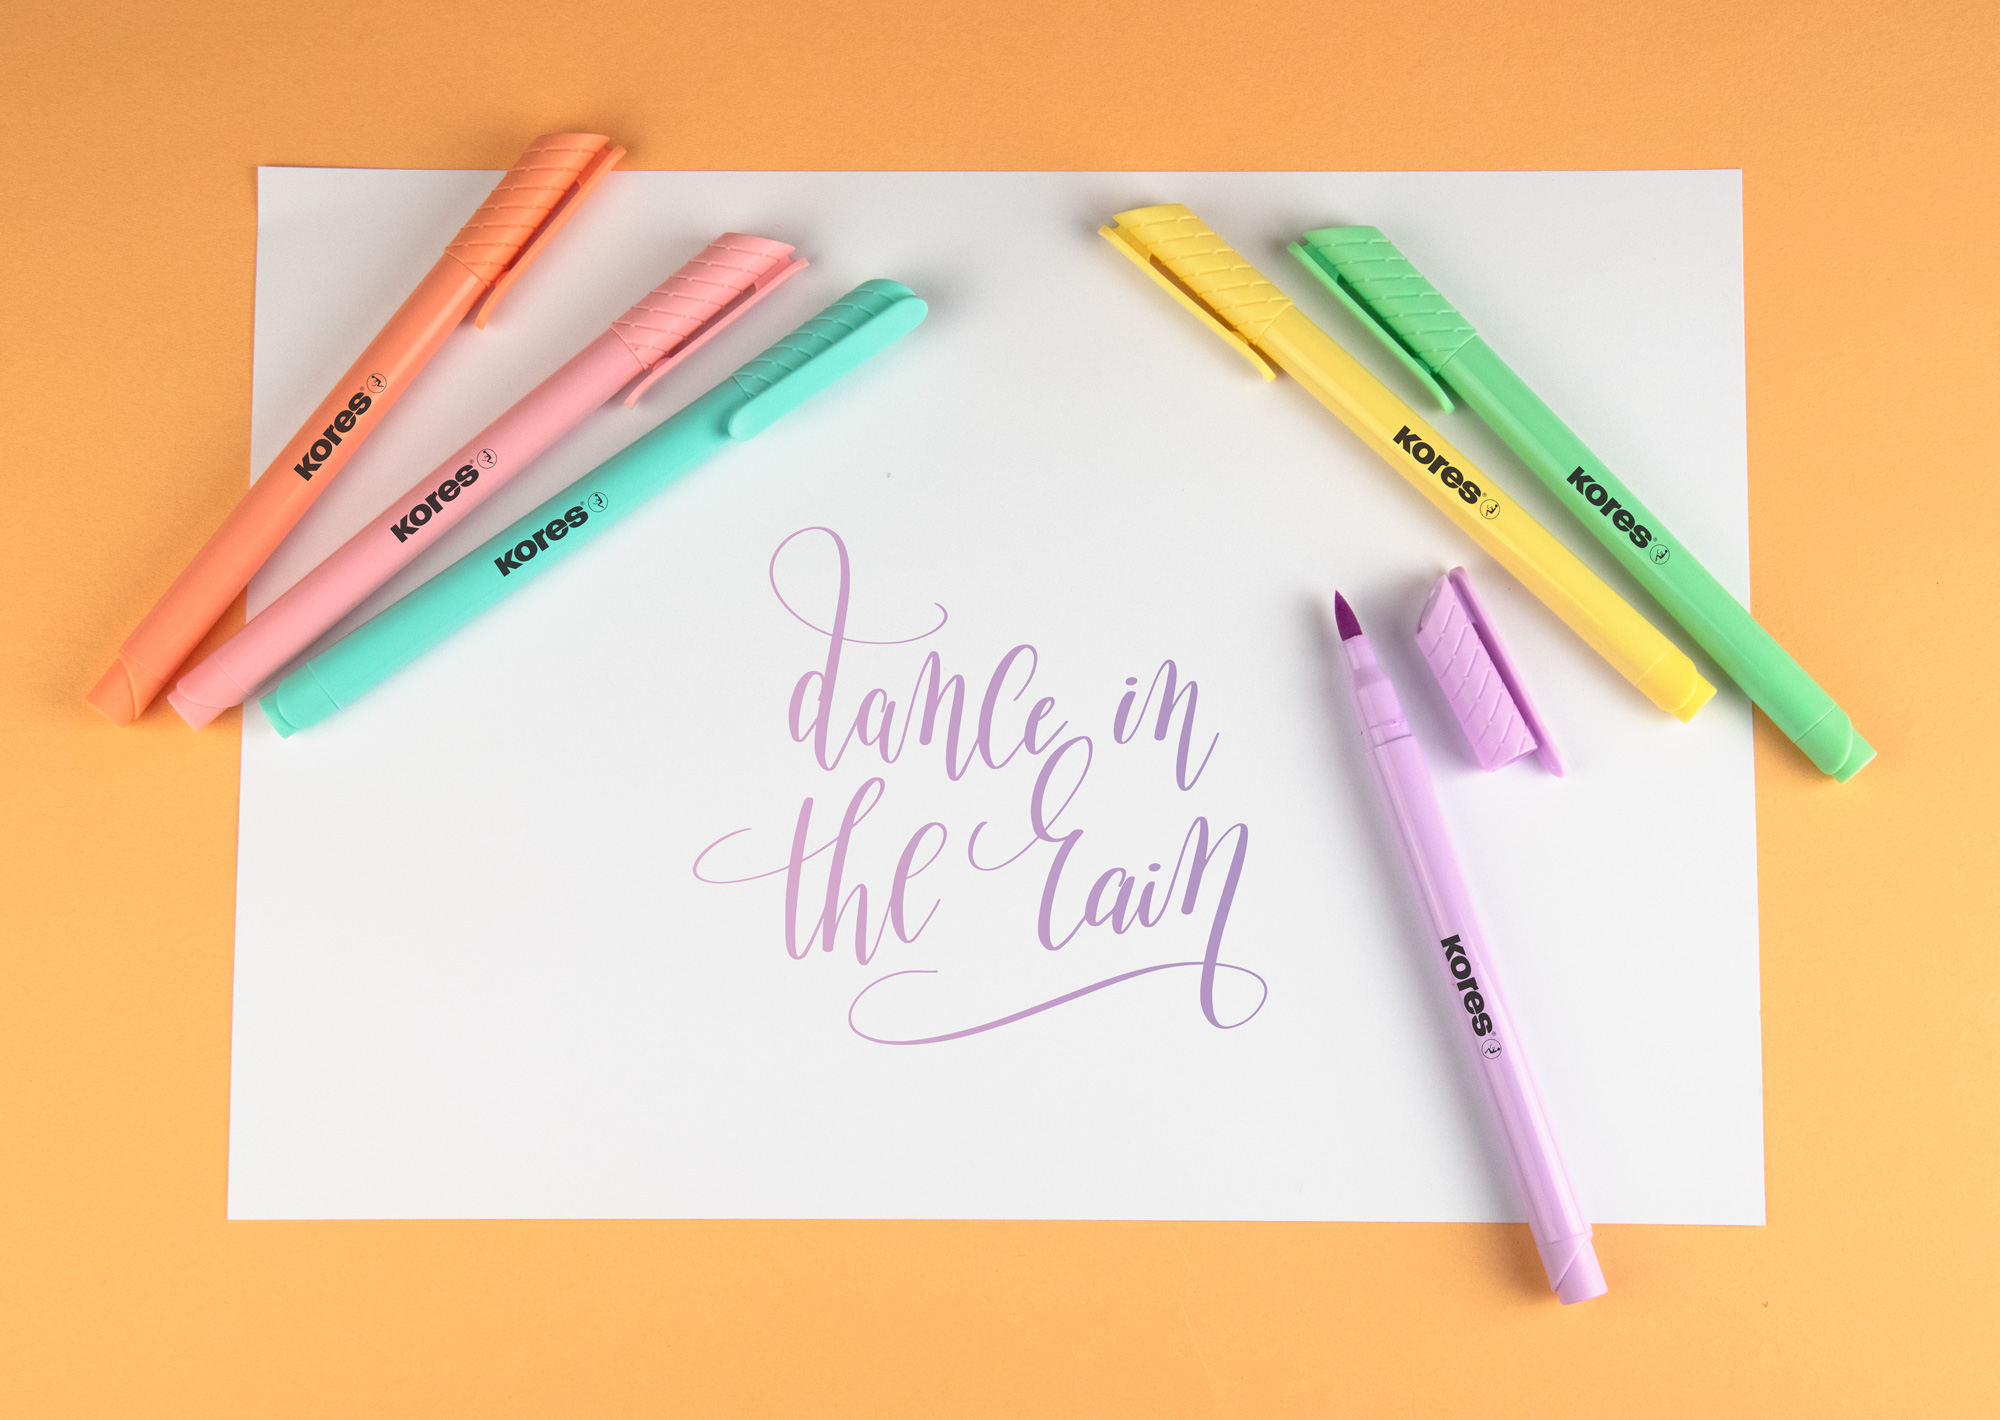 Kores
Kores
Kores
Kores
Kores
dance in
the rain
Kores